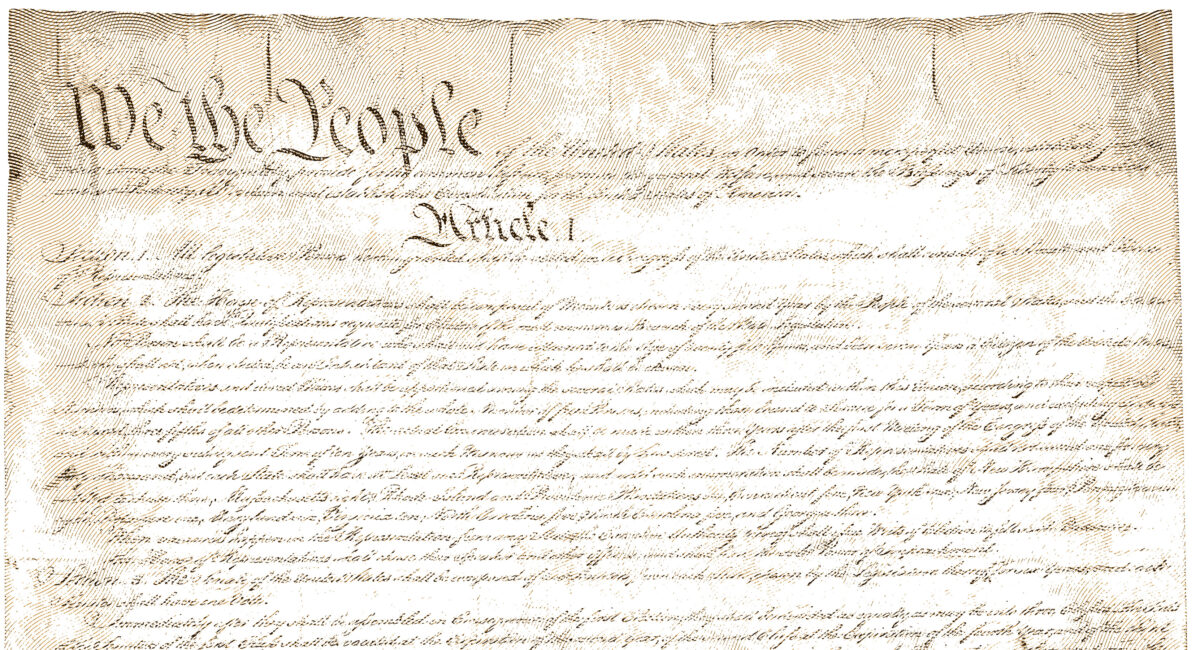 We the People of the United States, in Order to form a more perfect Union, establish
insure domestic Tranquility, provide for the common defence, promote the general Welfare, and secure the Blessings of Liberty to ourselves
and our Posterity, do ordain and establish this Constitution for the United States of America.
Article I.
Section. 1. All legislative Powers herein granted shall be vested in a Congress of the United States, which shall consist of a Senate and House
of Representatives.
Section. 2. The House of Representatives shall be composed of Members chosen every second Year by the People of the several States, and the Electors
in each State shall have Qualifications requisite for Electors of the most numerous Branch of the State Legislature.
No Person shall be a Representative who shall not have attained to the Age of twenty five Years, and been seven Years a Citizen of the United States,
and who shall not, when elected, be an Inhabitant of that State in which he shall be chosen.
Representatives and direct Taxes shall be apportioned among the several States which may be included within this Union, according to their respective
Numbers, which shall be determined by adding to the whole Number of free Persons, including those bound to Service for a Term of Years, and excluding Indians
not taxed, three fifths of all other Persons. The actual Enumeration shall be made within three Years after the first Meeting of the Congress of the United States,
and within every subsequent Term of ten Years, in such Manner as they shall by Law direct. The Number of Representatives shall not exceed one for every
thirty Thousand, but each State shall have at Least one Representative; and until such enumeration shall be made, the State of New Hampshire shall be
entitled to chuse three, Massachusetts eight, Rhode-Island and Providence Plantations one, Connecticut five, New-York six, New Jersey four, Pennsylvania
eight, Delaware one, Maryland six, Virginia ten, North Carolina five, South Carolina five, and Georgia three.
When vacancies happen in the Representation from any State, the Executive Authority thereof shall issue Writs of Election to fill such Vacancies.
The House of Representatives shall chuse their Speaker and other Officers; and shall have the sole Power of Impeachment.
Section. 3. The Senate of the United States shall be composed of two Senators from each State, chosen by the Legislature thereof, for six Years; and each
Senator shall have one Vote.
Immediately after they shall be assembled in Consequence of the first Election, they shall be divided as equally as may be into three Classes. The Seats
of the Senators of the first Class shall be vacated at the Expiration of the second Year, of the second Class at the Expiration of the fourth Year, and of the third